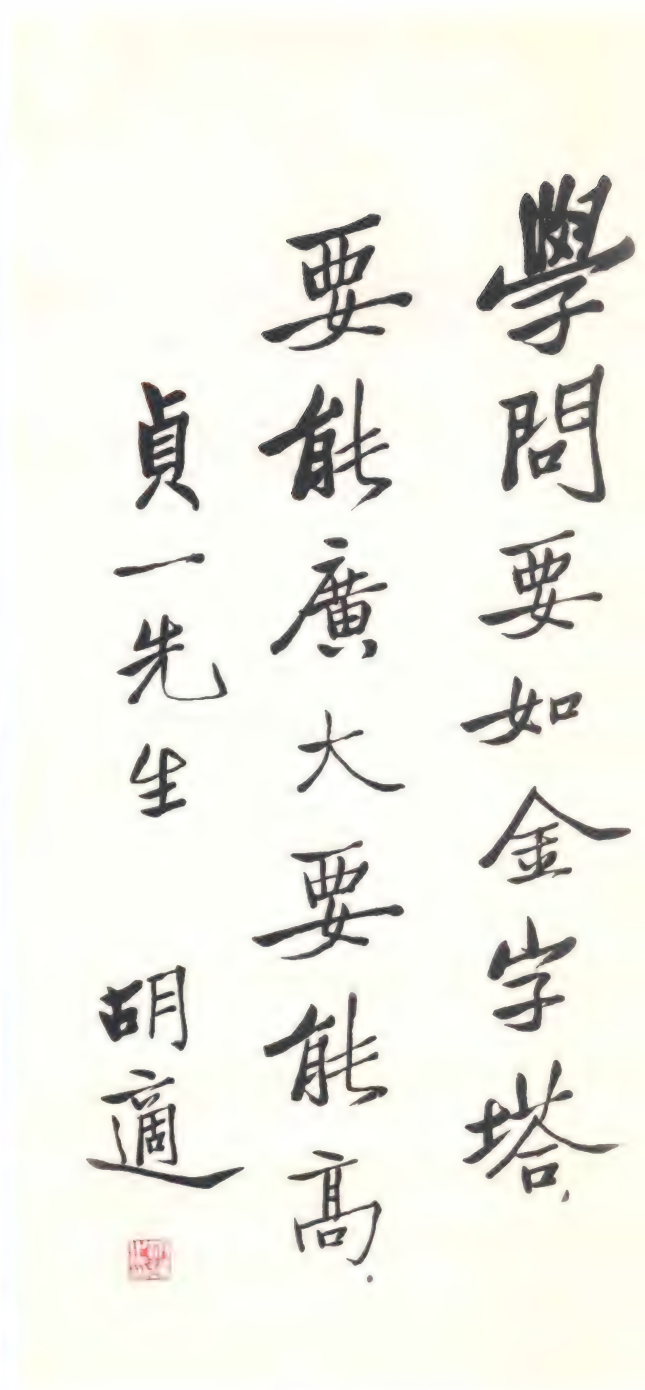 學問要如金字塔，
要能廣大要能高．
貞一先生 胡適